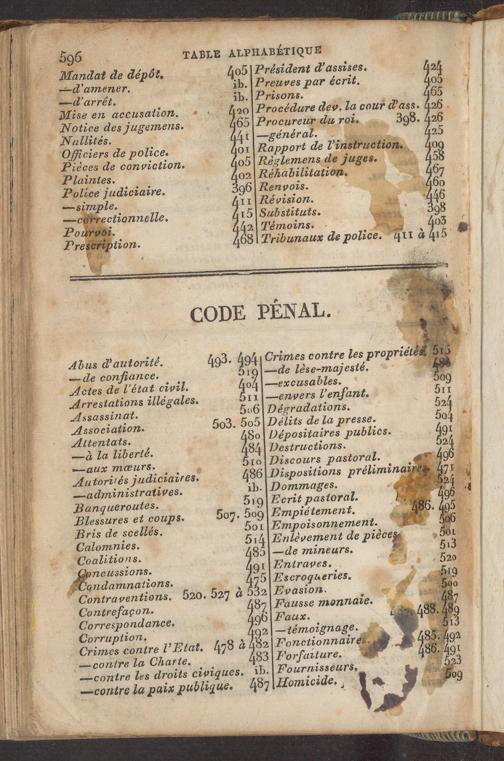 596
TABLE ALPHABÉTIQUE
Mandat de dépôt. 405
—d'amener. ib.
—d'arrêt. ib.
Mise en accusation. 420
Notice des jugemens. 465
Nullités. 441
Officiers de police. 401
Pièces de conviction. 405
Plaintes. 402
Police judiciaire. 396
—simple. 411
—correctionnelle. 415
Pourvoi. 442
Prescription. 468
Président d'assises. 424
Preuves par écrit. 403
Prisons. 465
Procédure dev. la cour d'ass. 426
Procureur du roi. 398. 426
—général. 425
Rapport de l'instruction. 409
Réglemens de juges. 458
Réhabilitation. 467
Renvois. 460
Révision. 446
Substituts. 398
Témoins. 403
Tribunaux de police. 411 à 415
CODE PÉNAL.
Abus d'autorité. 493. 494
—de confiance. 519
Actes de l'état civil. 404
Arrestations illégales. 511
Assassinat. 506
Association. 503. 505
Attentats. 480
—à la liberté. 484
—aux mœurs. 510
Autorités judiciaires. 486
—administratives. ib.
Banqueroutes. 519
Blessures et coups. 507. 509
Bris de scellés. 501
Calomnies. 514
Coalitions. 485
Concussions. 491
Condamnations. 475
Contraventions. 520. 527 à 532
Contrefaçon. 487
Correspondance. 496
Corruption. 492
Crimes contre l'Etat. 478 à 482
—contre la Charte. 483
—contre les droits civiques. ib.
—contre la paix publique. 487
Crimes contre les propriétés. 515
—de lèse-majesté.
—excusables. 509
—envers l'enfant. 511
Dégradations. 524
Délits de la presse. 504
Dépositaires publics. 491
Destructions. 524
Discours pastoral. 496
Dispositions préliminaires 471
Dommages. 524
Ecrit pastoral. 496
Empiétement. 486. 495
Empoisonnement. 506
Enlèvement de pièces. 501
—de mineurs. 513
Entraves. 520
Escroqueries. 519
Evasion. 500
Fausse monnaie. 487
Faux. 488. 489
—témoignage. 513
Fonctionnaires 485. 492
Forfaiture. 486. 491
Fournisseurs. 523
Homicide. 509